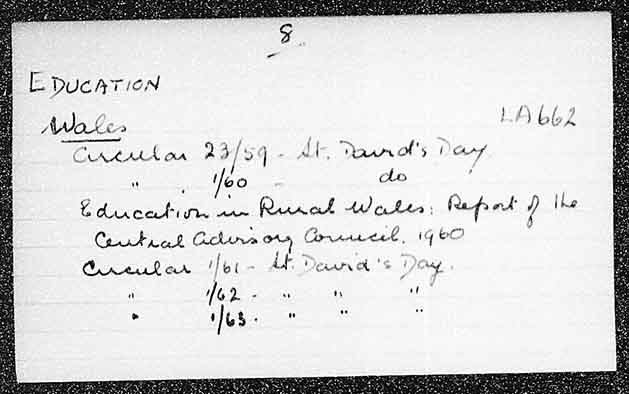 8
EDUCATION
Wales LA662
Circular 23/59 - St. David's Day
" . 1/60 - do
Education in Rural Wales: Report of the
Central Advisory Council. 1960
Circular 1/61 - St. David's Day.
" 1/62 - " " "
" 1/63. " " "